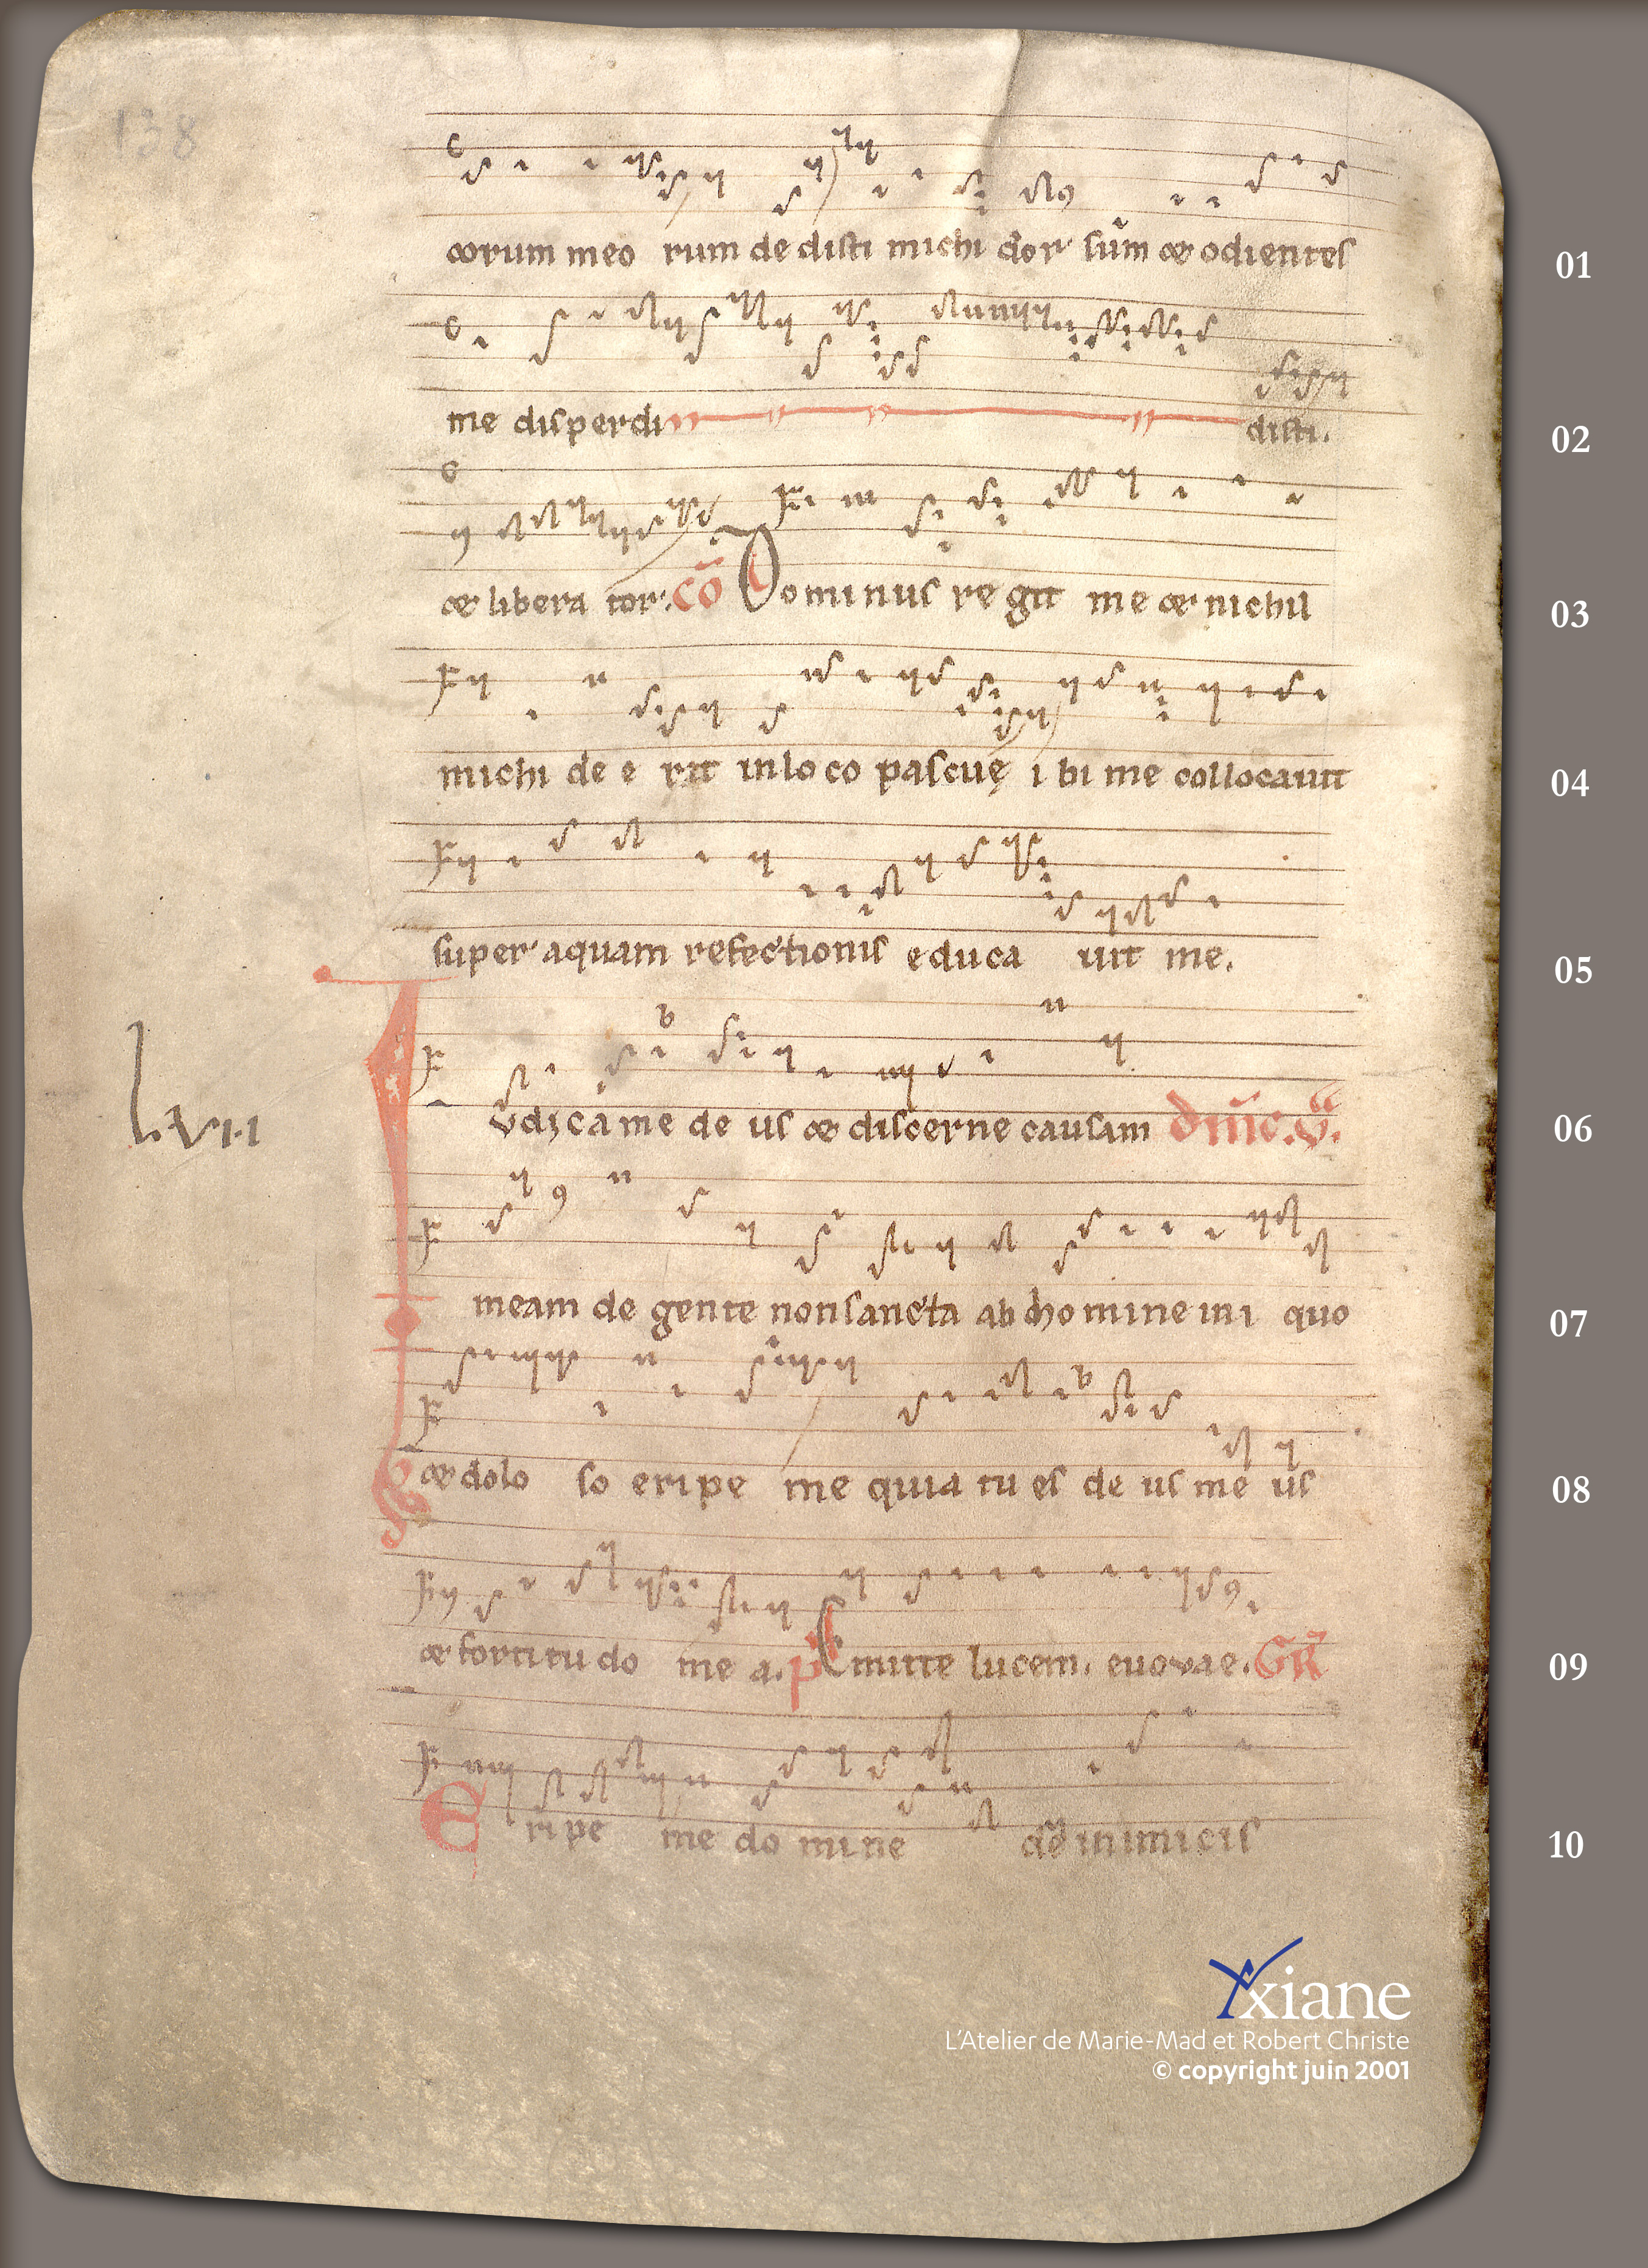 138
corum meo rum de disti michi dor sum & odientes 01
me disperdi disti. 02
& libera tor. cō Dominus re git me & nichil 03
michi de e rit inlo co pascuę i bi me collocauit 04
super aquam refectionis educa uit me. 05
Lvii
Iudica me de us & discerne causam 06
meam de gente non sancta ab homine ini quo 07
& dolo so eripe me quia tu es de us me us 08
& fortitu do me a. ps Emitte lucem. euovae. GR 09
Eripe me do mine de inimicis 10
Yxiane
L'Atelier de Marie-Mad et Robert Christe
© copyright juin 2001